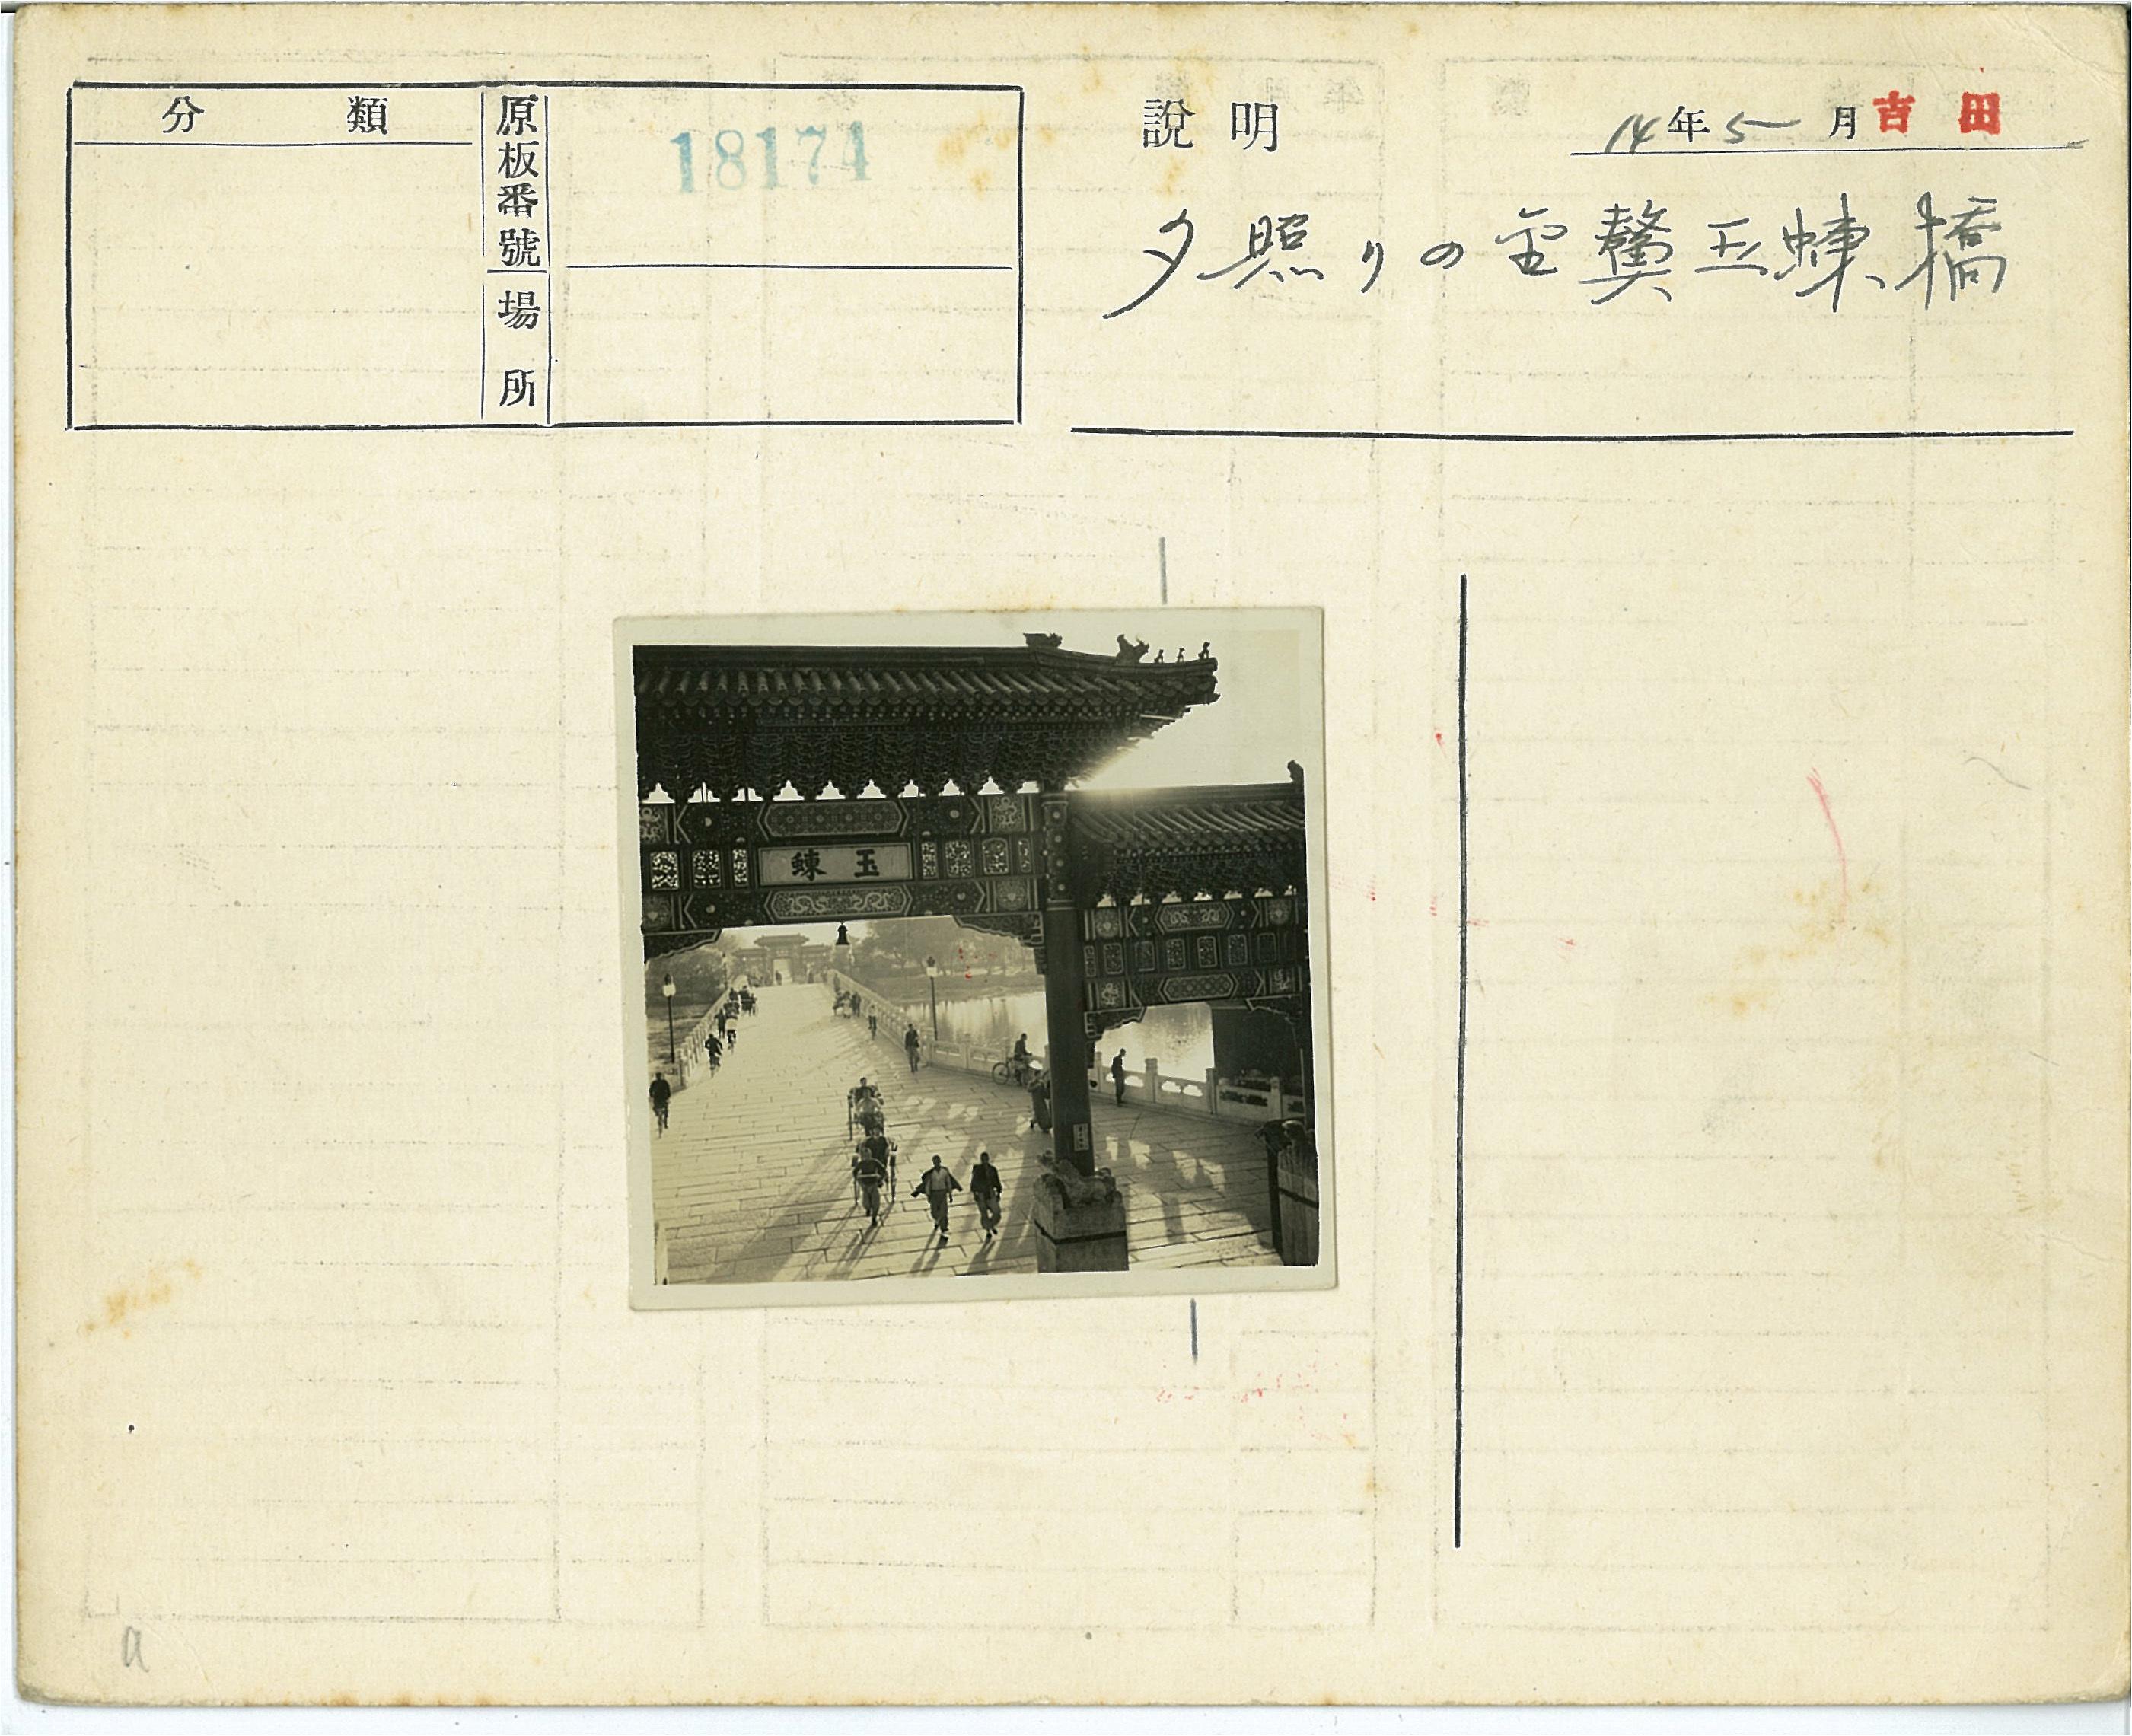 分類
原板番號
18174
場所
說明
14年5月 吉田
夕照りの金鰲玉蝀橋
玉蝀
a